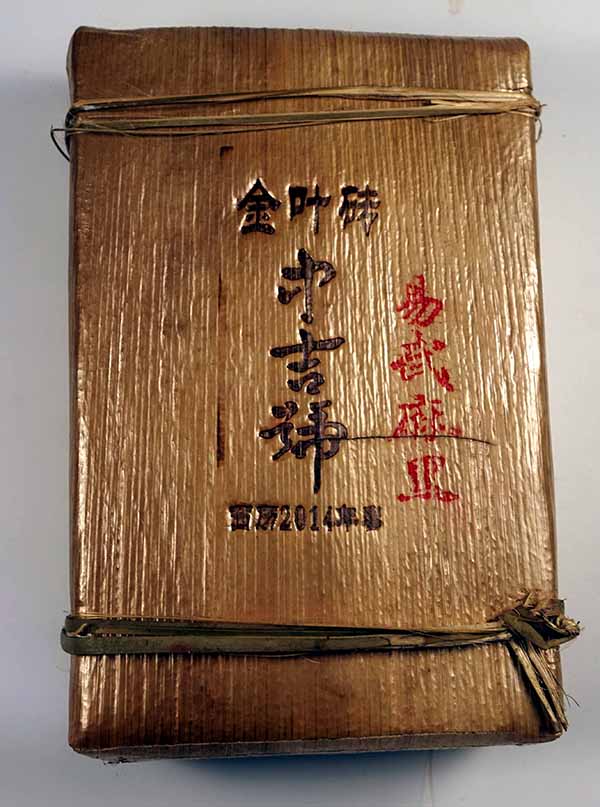 金叶砖
中吉號
西历2014年春
易武麻黑